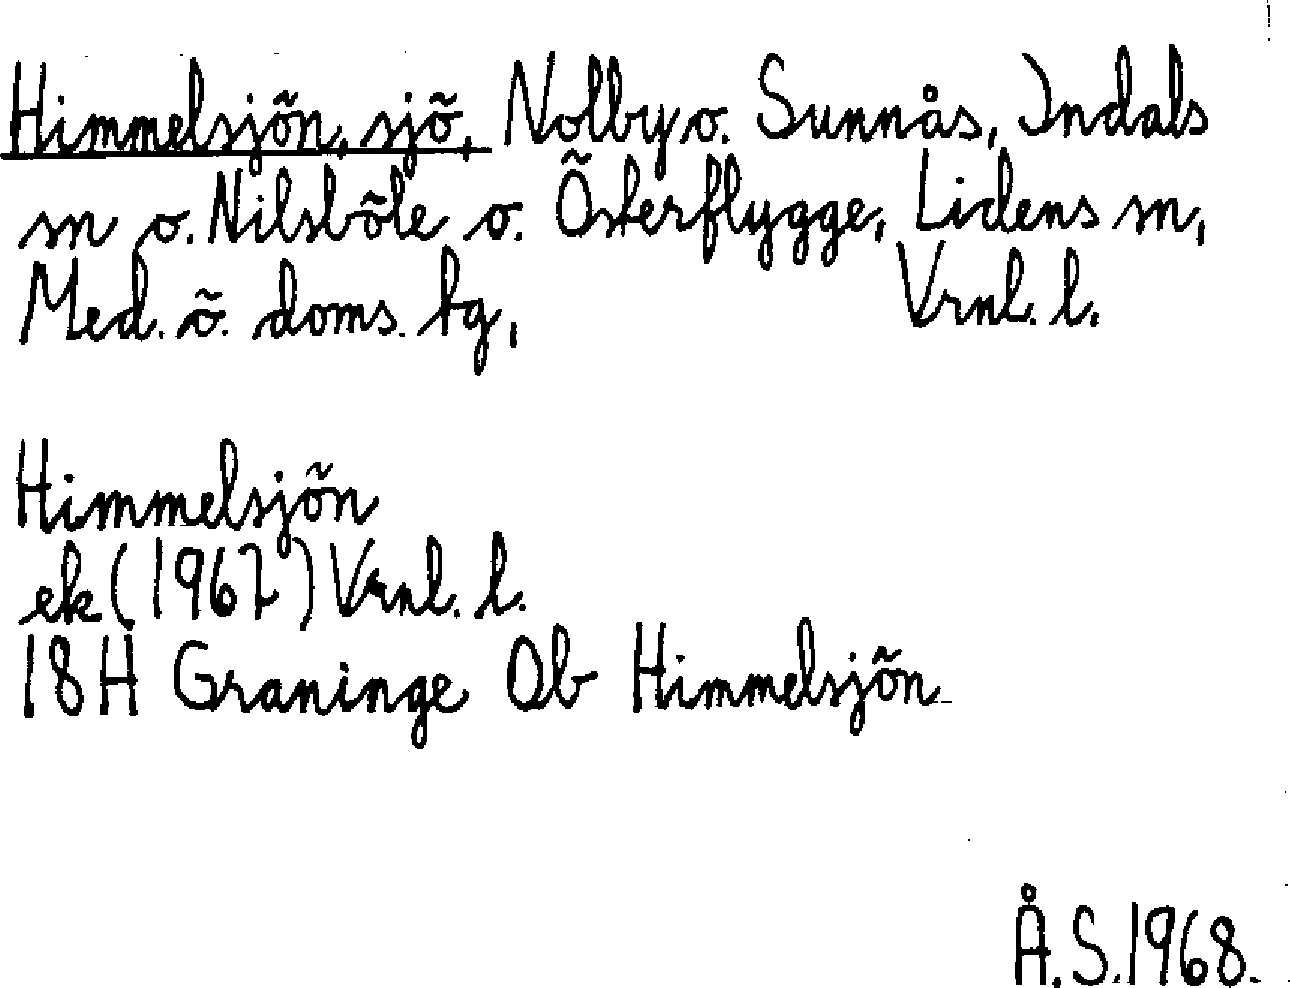 Himmelsjön, sjö, Nolby o. Sunnås, Indals
sn o. Nilsböle o. Österflygge, Lidens sn,
Med. ö. doms. bg, Vrnl. l.
Himmelsjön
ek (1967) Vrnl. l.
18H Graninge Ob Himmelsjön
Å.S.1968.